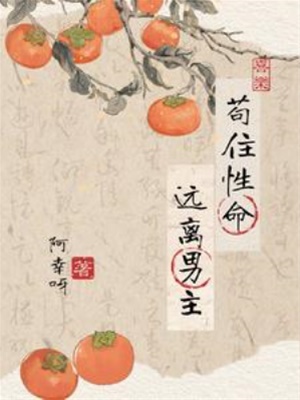 苟住性命
远离男主
阿幸呀
著
喜樂